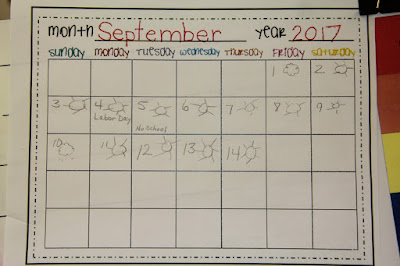 month September year 2017
SUNDAY MONDAY TUESDAY WEDNESDAY THURSDAY FRIDAY SATURDAY
1 2
3 4 5 6 7 8 9
Labor Day No School
10 11 12 13 14